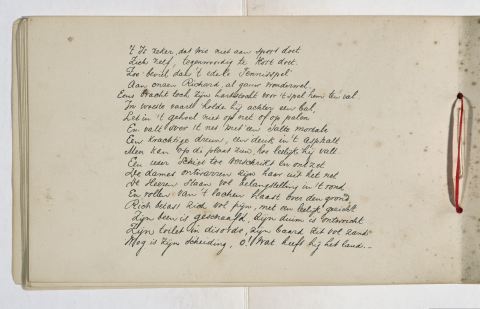 't Is zeker, dat wie niet aan sport doet
Zich zelf, tegenwoordig te kort doet.
Zoo beviel dan 't edele Tennisspel
Aan onzen Richard, al gauw wonderwel,
Eens bracht toch zijn hartstocht voor 't spel hem ten val
In woeste vaart holde hij achter een bal,
Let in 't geheel niet op net of op palen
En valt over 't net met een salto mortale
Een krachtige dreun, een deuk in 't asphalt
Men kan op de plaat zien, hoe leelijk hij valt
Een ieder schiet toe verschrikt en ontzet
De dames ontwarren zijn haar uit het net
De Heeren staan vol belangstelling in 't rond
En rollen van 't lachen haast over den grond
Rich zich vol pijn, met een leelijk gezicht
Zijn been is geschaafd, zijn duim is ontwricht
Zijn toilet in disorde, zijn baard zit vol zand
Weg is zijn scheiding, O! Wat heeft hij het land.